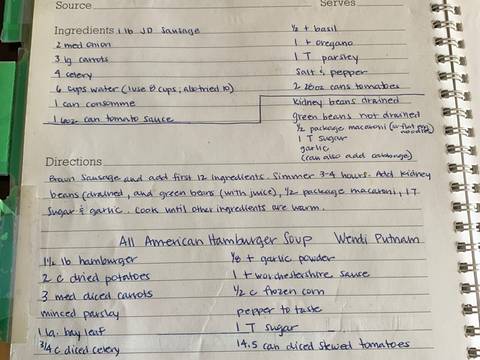 Source
Serves
Ingredients 1 lb JD Sausage
2 med onion
3 lg carrots
4 celery
6 cups water (I use 8 cups, also tried 10)
1 can consomme
1 6oz can tomato sauce
½ t basil
1 t oregano
1 T parsley
Salt & pepper
2 28oz cans tomatoes
kidney beans drained
green beans not drained
½ package macaroni (or flat egg noodles)
1 T sugar
garlic
(can also add cabbage)
Directions
Brown Sausage and add first 12 ingredients. Simmer 3-4 hours. Add kidney
beans (drained, and green beans (with juice), ½ package macaroni, 1 T
sugar & garlic. Cook until other ingredients are warm.
All American Hamburger Soup Wendi Putnam
1½ lb hamburger
2 c dried potatoes
3 med diced carrots
minced parsley
1 lg. bay leaf
3/4 c diced celery
⅛ t garlic powder
1 t worchestershire sauce
½ c frozen corn
pepper to taste
1 T sugar
14.5 can diced stewed tomatoes